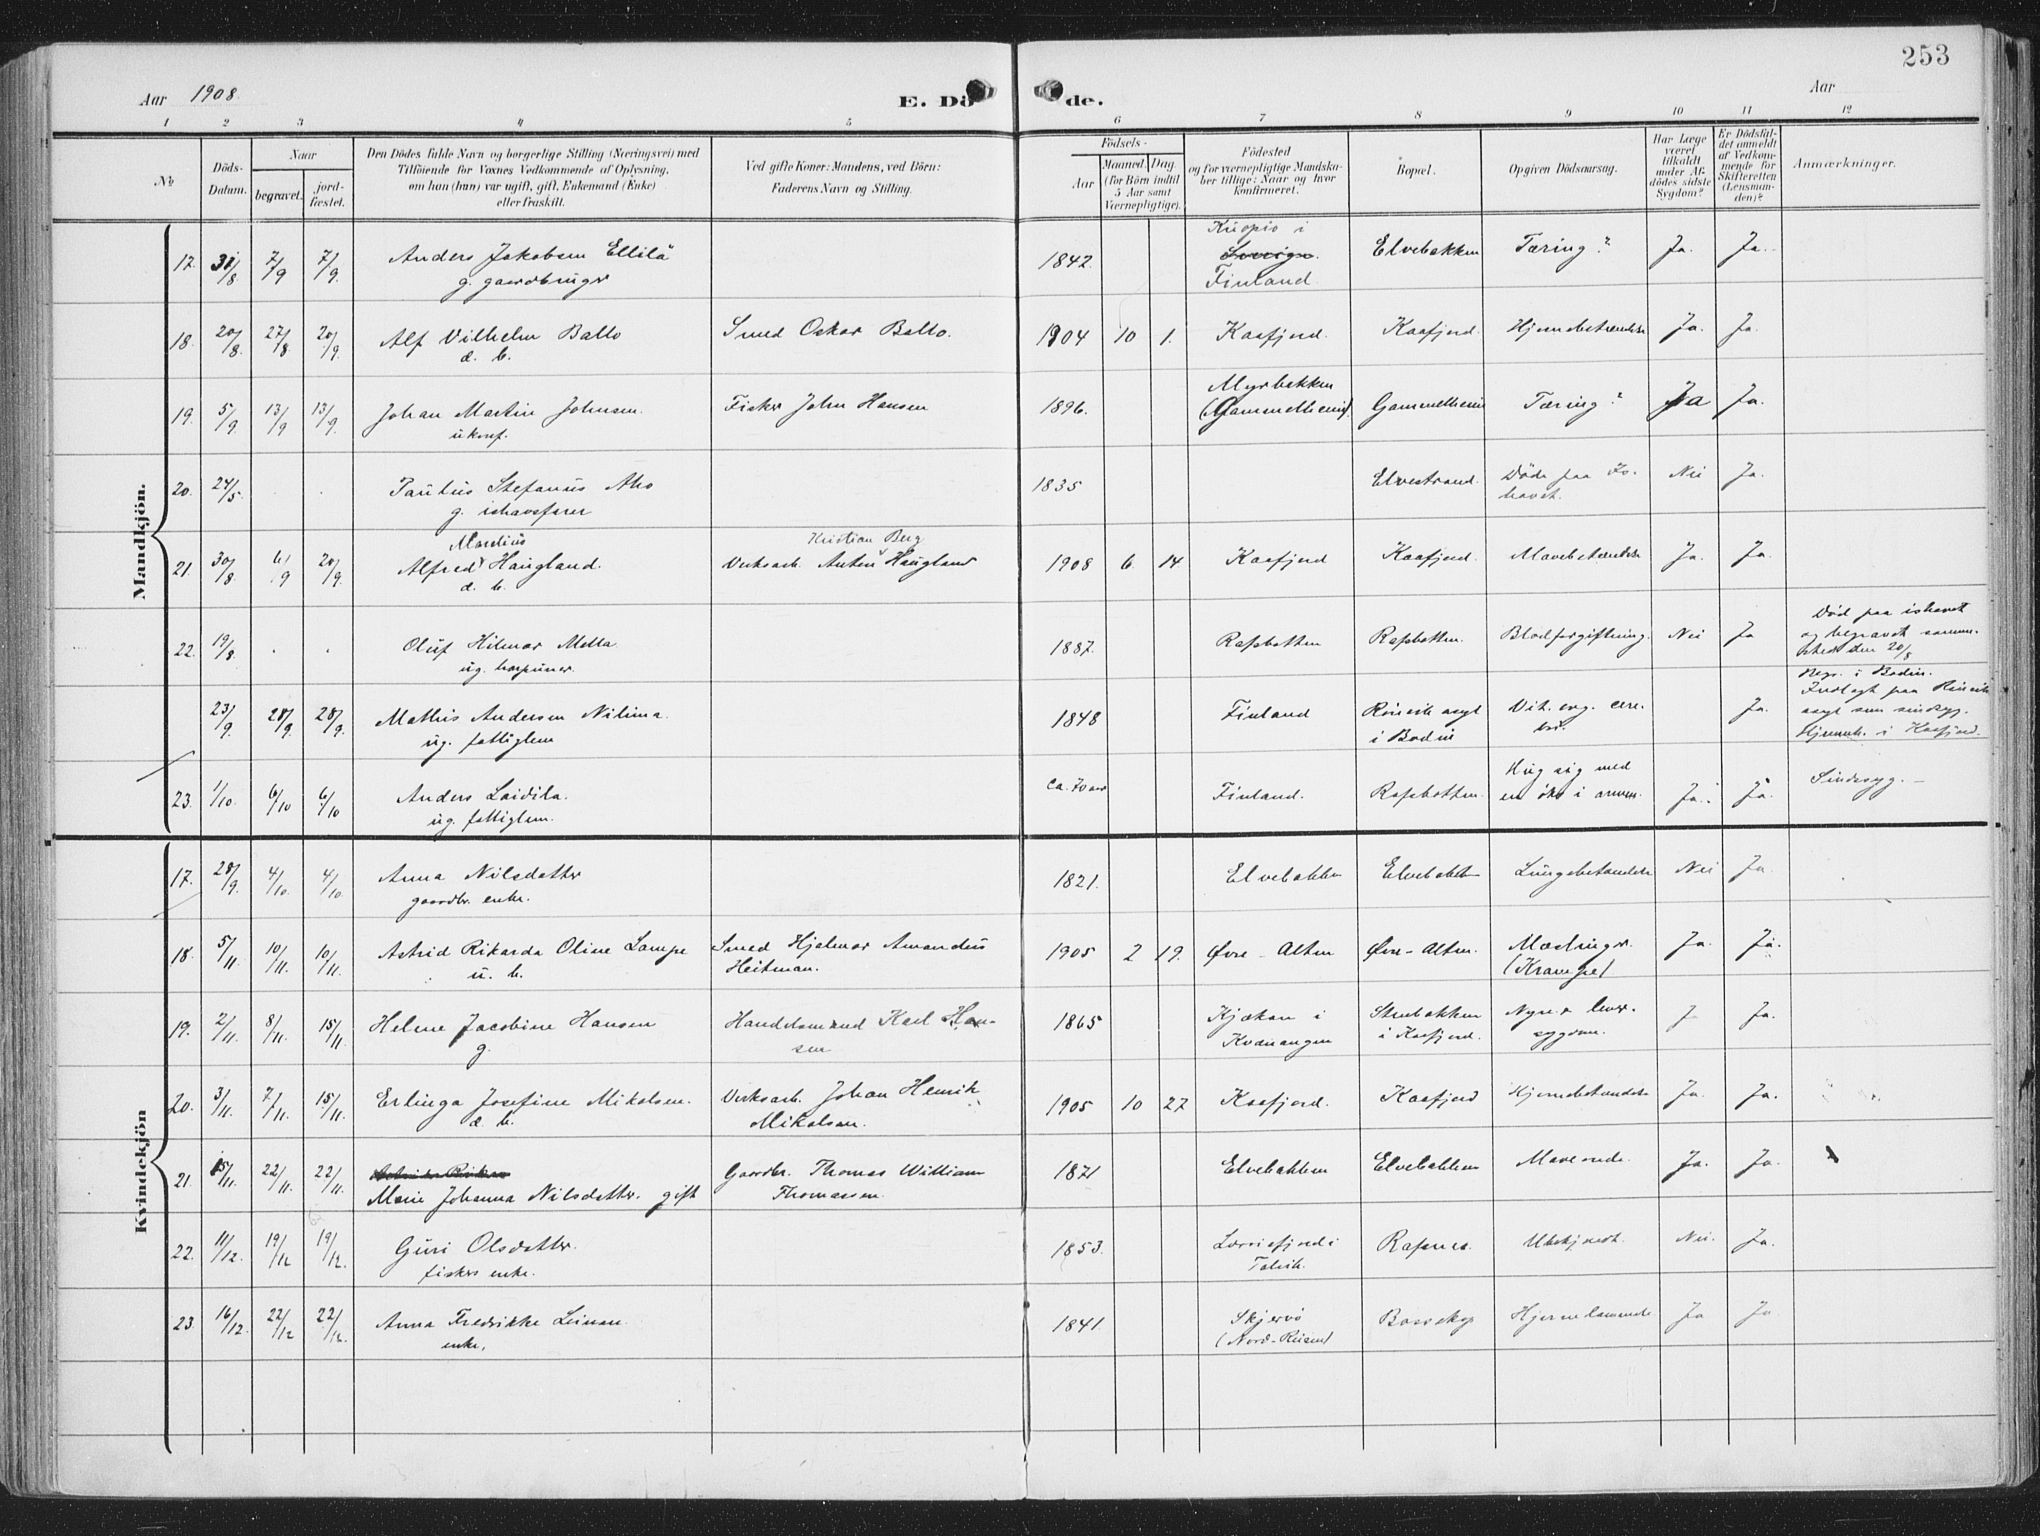 253
Aar 1908.
E. Dö de.
Aar
1 2 3 4 5 6 7 8 9 10 11 12
No
Döds-
Datum.
Naar
begravet.
jord-
fæstet.
Den Dödes fulde Navn og borgerlige Stilling (Næringsvei) med
Tilföiende for Voxnes Vedkommende af Oplysning,
om han (hun) var ugift, gift, Enkemand (Enke)
eller fraskilt.
Ved gifte Koner: Mandens, ved Börn:
Faderens Navn og Stilling.
Födsels-
Aar
Maaned. Dag.
(for Börn indtil
5 Aar samt
Værnepligtige).
Födested
og for værnepligtige Mandska-
ber tillige: Naar og hvor
konfirmeret.
Bopæl.
Opgiven Dödsaarsag.
Har Læge
været
tilkaldt
under Af-
dödes sidste
Sygdom?
Er Dödsfal-
det anmeldt
af Vedkom-
mende for
Skifteretten
(Lensman-
den)?
Anmærkninger.
Mandkjön.
17. 31/8 7/9 7/9 Anders Jakobsen Ellilä 1842. Kuopio i Elvebakken Tæring? Ja. Ja.
g. gaardbruger Finland.
18. 20/8 27/8 20/9 Alf Vilhelm Balto Smed Oskar Balto. 1904 10 1. Kaafjord. Kaafjord. Hjernebetændelse Ja. Ja.
d. b.
19. 5/9. 13/9 13/9. Johan Martin Johnsen. Fisker John Hansen 1896. Myrbakken (Gammelheim). Gammelheim Tæring? Ja Ja.
ukonf.
20. 24/5 . . Paulus Stefanus Aho 1835 Elvestrand. Döde paa Is- Nei Ja.
g. ishavsfarer havet.
Mardius Kristian Berg
21. 30/8 6/9 20/9. Alfred Haugland. Verksarb. Anton Haugland 1908 6. 14 Kaafjord Kaafjord. Mavebetændelse Ja. Ja.
d. b.
22. 19/8. . . Oluf Hilmar Mella 1887. Rafsbotten Rafsbotten. Blodforgiftning. Nei Ja Död paa ishavet
ug. harpuner. og begravet samme-
steds den 20/8
23/9 28/9 28/9. Mathis Andersen Nilima. 1848 Finland Rönvik asyl Vit. org. cere- Ja. Begr. i Bodin.
ug. fattiglem i Bodin bri. Indlagt paa Rönvik
asyl som sindssyg.
Hjemmeh. i Kaafjord.
23. 1/10. 6/10 6/10 Anders Laidila. ca. 70 aar Finland. Rafsbotten. Hug sig med Ja. Ja. Sindssyg. –
ug. fattiglem. en öks i armen.
Kvindekjön
17. 28/9. 4/10. 4/10. Anna Nilsdatter 1821. Elvebakken Elvebakken Lungebetændelse Nei Ja.
gaardbr. enke.
18. 5/11. 10/11. 10/11. Astrid Rikarda Oline Lampe Smed Hjalmar Amandus 1905 2 19. Øvre-Alten Øvre-Alten. Mæslinger. Ja. Ja.
u. b. Heitman. (Krampe)
19. 2/11. 8/11. 15/11. Helene Jacobine Hansen Handelsmand Karl Han- 1865 Kjækan i Stenbakken Nyre & lever- J Ja.
g. sen Kvænangen i Kaafjord. sygdom.
20. 3/11. 7/11. 15/11. Erlinga Josefine Mikalsen. Verksarb. Johan Henrik 1905 10 27 Kaafjord. Kaafjord Hjernebetændelse Ja. Ja.
d. b. Mikalsen.
21. 15/11. 22/11. 22/11. Marie Johanna Nilsdatter. gift Gaardbr. Thomas William 1871 Elvebakken Elvebakken Maveonde. Ja. Ja.
Thomassen.
22. 11/12. 19/12 19/12. Guri Olsdatter. 1853. Rafsnes. Ubekjendt. Nei. Ja.
fiskers enke. Talvik.
23. 16/12. 22/12 22/12. Anna Fredrikke Leinan. 1841. Skjervö Bossekop Hjernelammelse Ja Ja
enke. (Nord-Reisen)